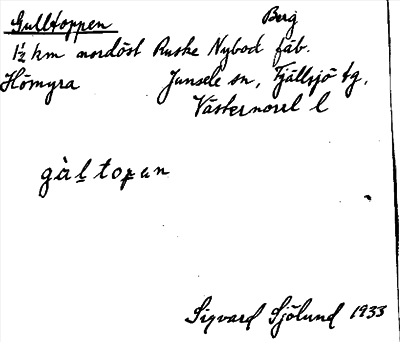 Gulltoppen Berg
1½ km nordöst Ruske Nybod fäb.
Hömyra Junsele sn, Fjällsjö tg,
Västernorrl l
gàl̠topan
Sigvard Sjölund 1933